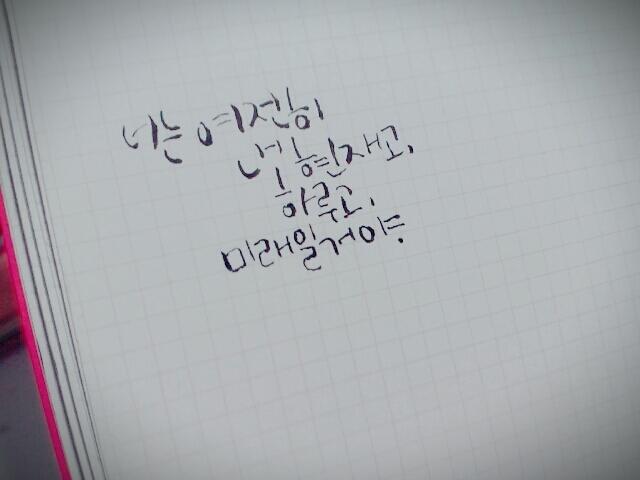 너는 여전히
내 현재고,
하루고,
미래일거야.